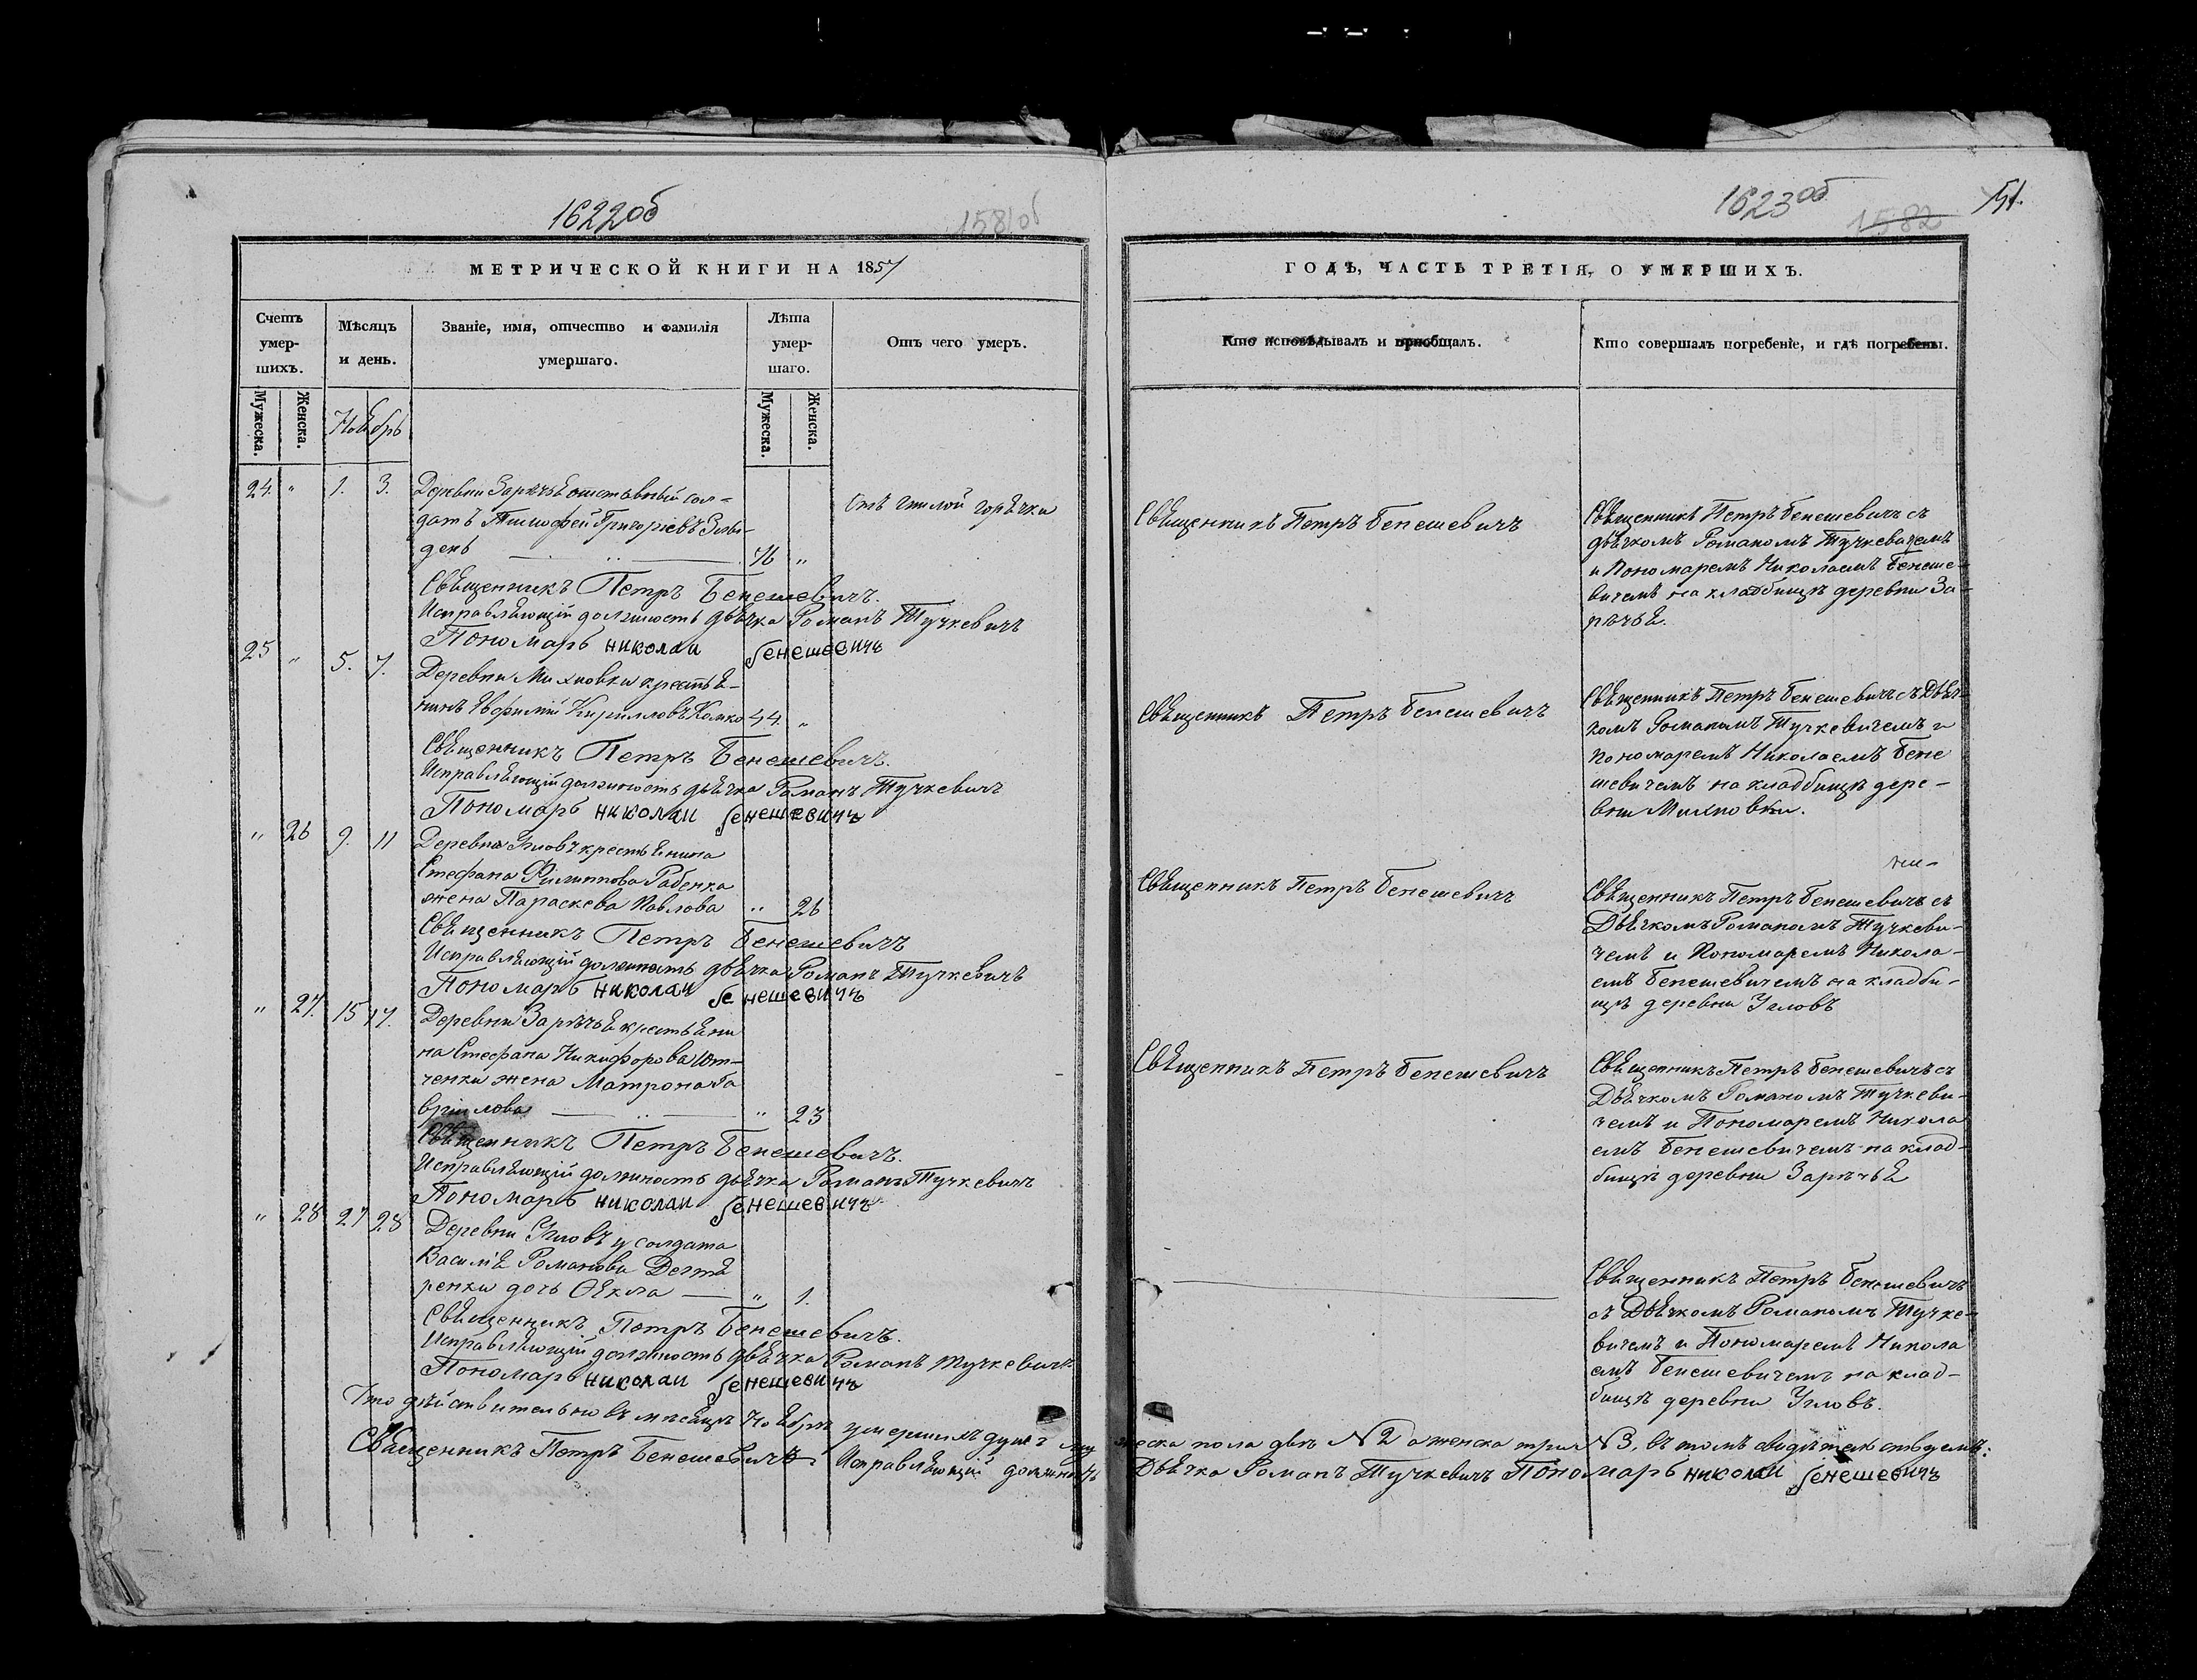 1622об
1581об
МЕТРИЧЕСКОЙ КНИГИ НА 1857
Счетъ умер-шихъ.
Мѣсяцъ и день.
Званіе, имя, отчество и фамилія умершаго.
Лѣта умер-шаго.
Отъ чего умеръ.
Мужеска. Женска.
Ноябрь
Мужеска. Женска.
24. " 1. 3. Деревни Зарѣчья отставный сол-
датъ Тимофей Григоріевъ
день " Отъ гнилой горячки
Священникъ Петръ Бенешевичъ.
Исправляющій должность дьячка Романъ Тучкевичъ
Пономарь николаи бенешевичъ
25 " 5. 7. Деревни Михновки крестья-
нинъ Евфимій Кирилловъ Комко 44. "
Священникъ Петръ Бенешевичъ.
Исправляющій должность дьячка Романъ Тучкевичъ
Пономарь николаи бенешевичъ
" 26 9. 11 Деревни Угловъ крестьянина
Стефана Филиппова Рабенка
жена Параскева Павлова " 26
Священникъ Петръ Бенешевичъ
Исправляющій должность дьячка Романъ Тучкевичъ
Пономарь николаи бенешевичъ
" 27. 15 17. Деревни Зарѣчья крестьяни
на Стефана Никифорова Ют-
ченки жена Матрона Га
врилова " 23
Священникъ Петръ Бенешевичъ.
Исправляющій должность дьячка Романъ Тучкевичъ
Пономарь николаи бенешевичъ
" 28 27 28 Деревни Угловъ у солдата
Василья Романова Дегтя
ренки дочь Ѳекла " 1.
Священникъ Петръ Бенешевичъ.
Исправляющій должность дьячка Романъ Тучкевичъ
Пономарь николаи бенешевичъ
Что дѣйствительно въ мѣсяцѣ Ноябрѣ умершихъ душъ му
Священникъ Петръ Бенешевичъ Исправляющій должность
1623об
1582
151.
ГОДЪ, ЧАСТЬ ТРЕТІЯ, О УМЕРШИХЪ.
Кто исповѣдывалъ и приобщалъ.
Кто совершалъ погребеніе, и гдѣ погребены.
Священникъ Петръ Бенешевичъ
Священникъ Петръ Бенешевичъ съ
дьячкомъ Романомъ Тучкевичемъ
и Пономаремъ Николаемъ Бенеше-
вичемъ на кладбищѣ деревни За-
рѣчья.
Священникъ Петръ Бенешевичъ
Священникъ Петръ Бенешевичъ съ Дьяч-
комъ Романомъ Тучкевичемъ и
пономаремъ Николаемъ Бене
шевичемъ на кладбищѣ дере-
вни Михновки.
Священникъ Петръ Бенешевичъ
Священникъ Петръ Бенешевичъ съ
Дьячкомъ Романомъ Тучкеви-
чемъ и Пономаремъ Никола-
емъ Бенешевичемъ на кладби-
щѣ деревни Угловъ
Священникъ Петръ Бенешевичъ
Священникъ Петръ Бенешевичъ съ
Дьячкомъ Романомъ Тучкеви-
чемъ и Пономаремъ Никола
емъ Бенешевичемъ на клад-
бищѣ деревни Зарѣчья
Священникъ Петръ Бенешевичъ
съ Дьячкомъ Романомъ Тучке-
вичемъ и Пономаремъ Никола
емъ Бенешевичемъ на клад-
бищѣ деревни Угловъ.
жеска пола двѣ № 2 а женска три № 3, въ томъ свидѣтельствуемъ:
Дьячка Романъ Тучкевичъ Пономарь николаи бенешевичъ